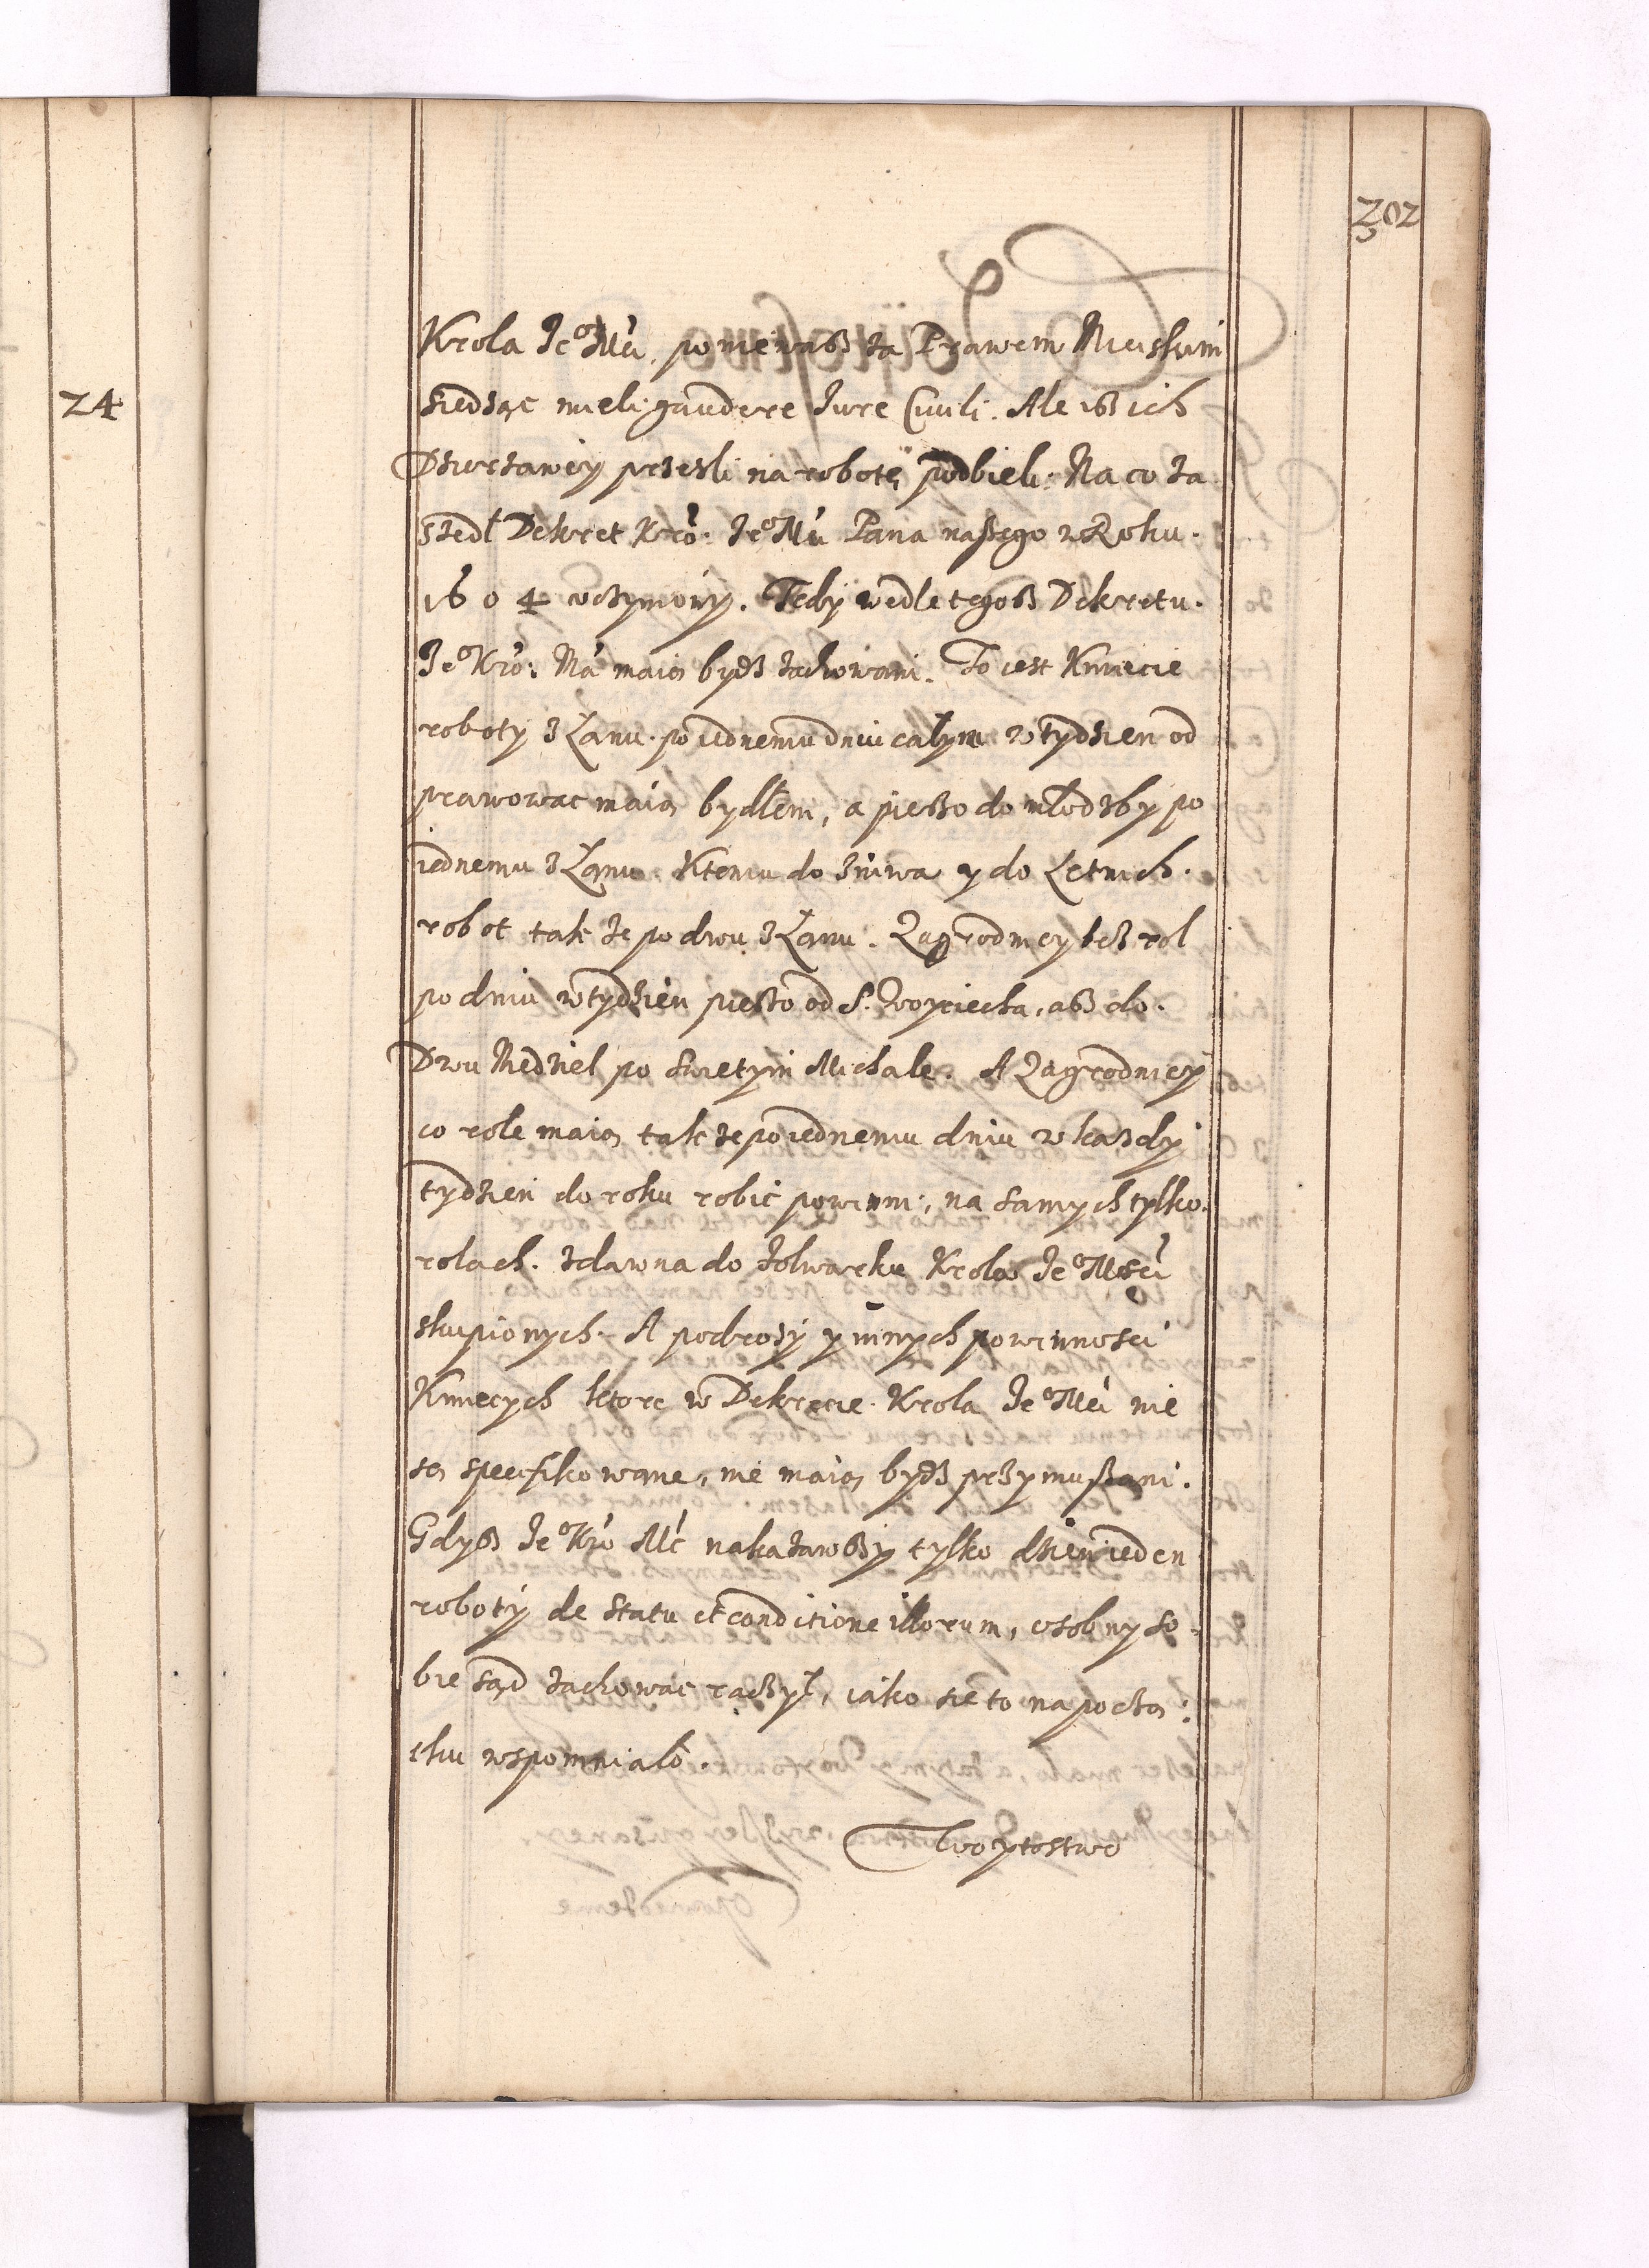 202
24
Krola Je⁰ Mći, poniewasz za Prawem Mieiskim
siedząc mieli gaudere Jure Civili. Ale isz ich
Dzierzawcy przeszli na robotę podbieli. Na co za
szedł Dekret Kro: Je⁰ Mći Pana naszego w Roku.
1604 uczyniony. Tedy wedle tegosz Dekretu.
Je⁰ Kro: Mći maią bydz zachowani. To iest Kmiecie
roboty z Łanu. po iednemu dniu całym w tydzien od
prawowac maią bydłem, a pieszo do młodzby po
iednemu z Łanu. K temu do zniwa y do Letnich.
robot takze po dwu z Łanu. Zagrodnicy bez rol
po dniu w tydzien pieszo od S. Woyciecha, asz do.
Dwu Niedziel po swiętym Michale. A Zagrodnicy
co role maią takze po iednemu dniu w kazdy
tydzien do roku robic powinni, na samych tylko.
rolach. zdawna do folwarku Krola Je⁰ Msci
skupionych. A podrozy y innych powinnosci
Kmiecych ktore w Dekrecie. Krola Je⁰ Mći nie
są specifikowane, nie maią bydz przymuszani.
Gdysz Je⁰ Kro Mć nakazawszy tylko dzien ieden
roboty de statu et conditione illorum, osobny so-
bie sąd zachowac raczył, iako się to na począ:
tku wspomniało.
Woytostwo